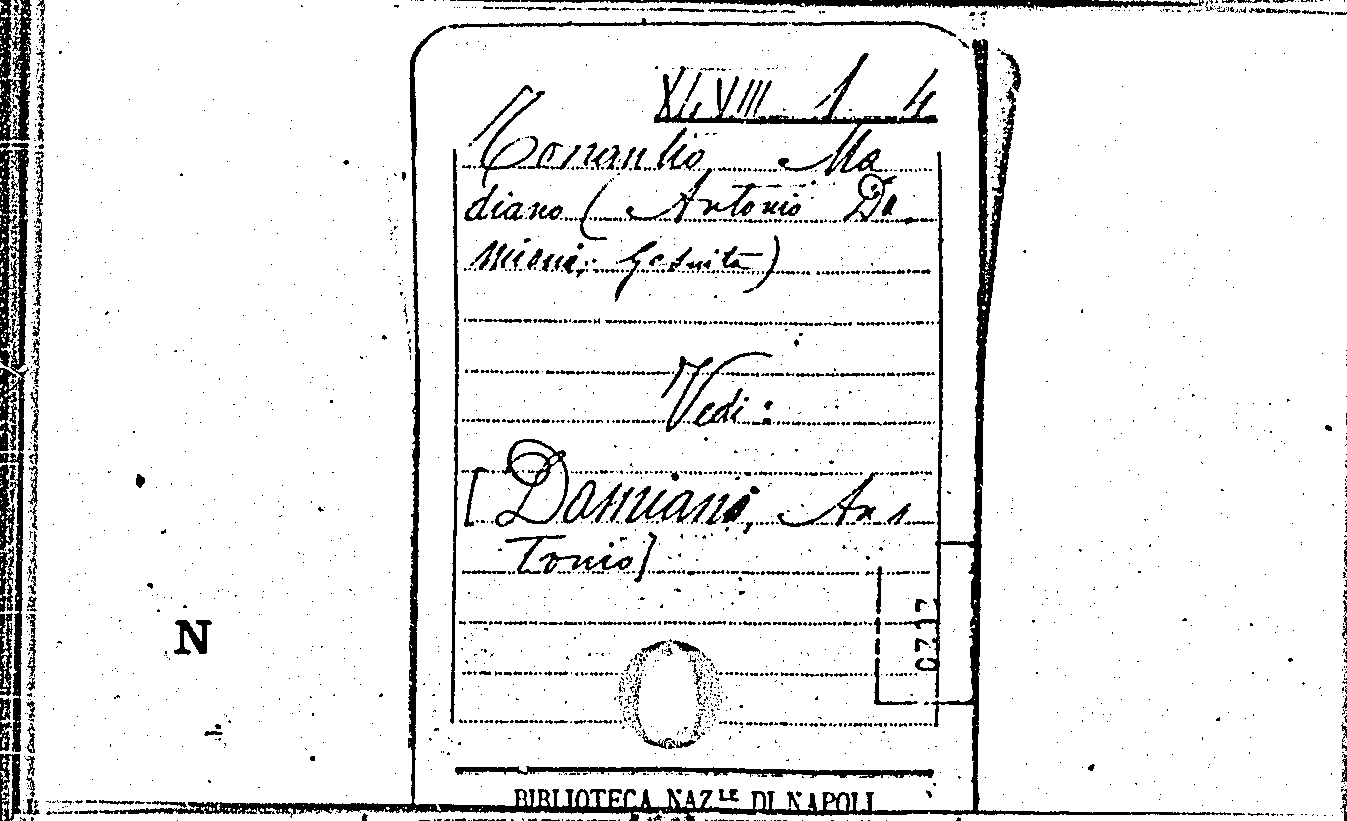 XLVIII 1 4
Ma
diano (Antonio Da
miani, Gesuita)
Vedi:
[Damiani, An
tonio]
0717
N
BIBLIOTECA NAZ.LE DI NAPOLI